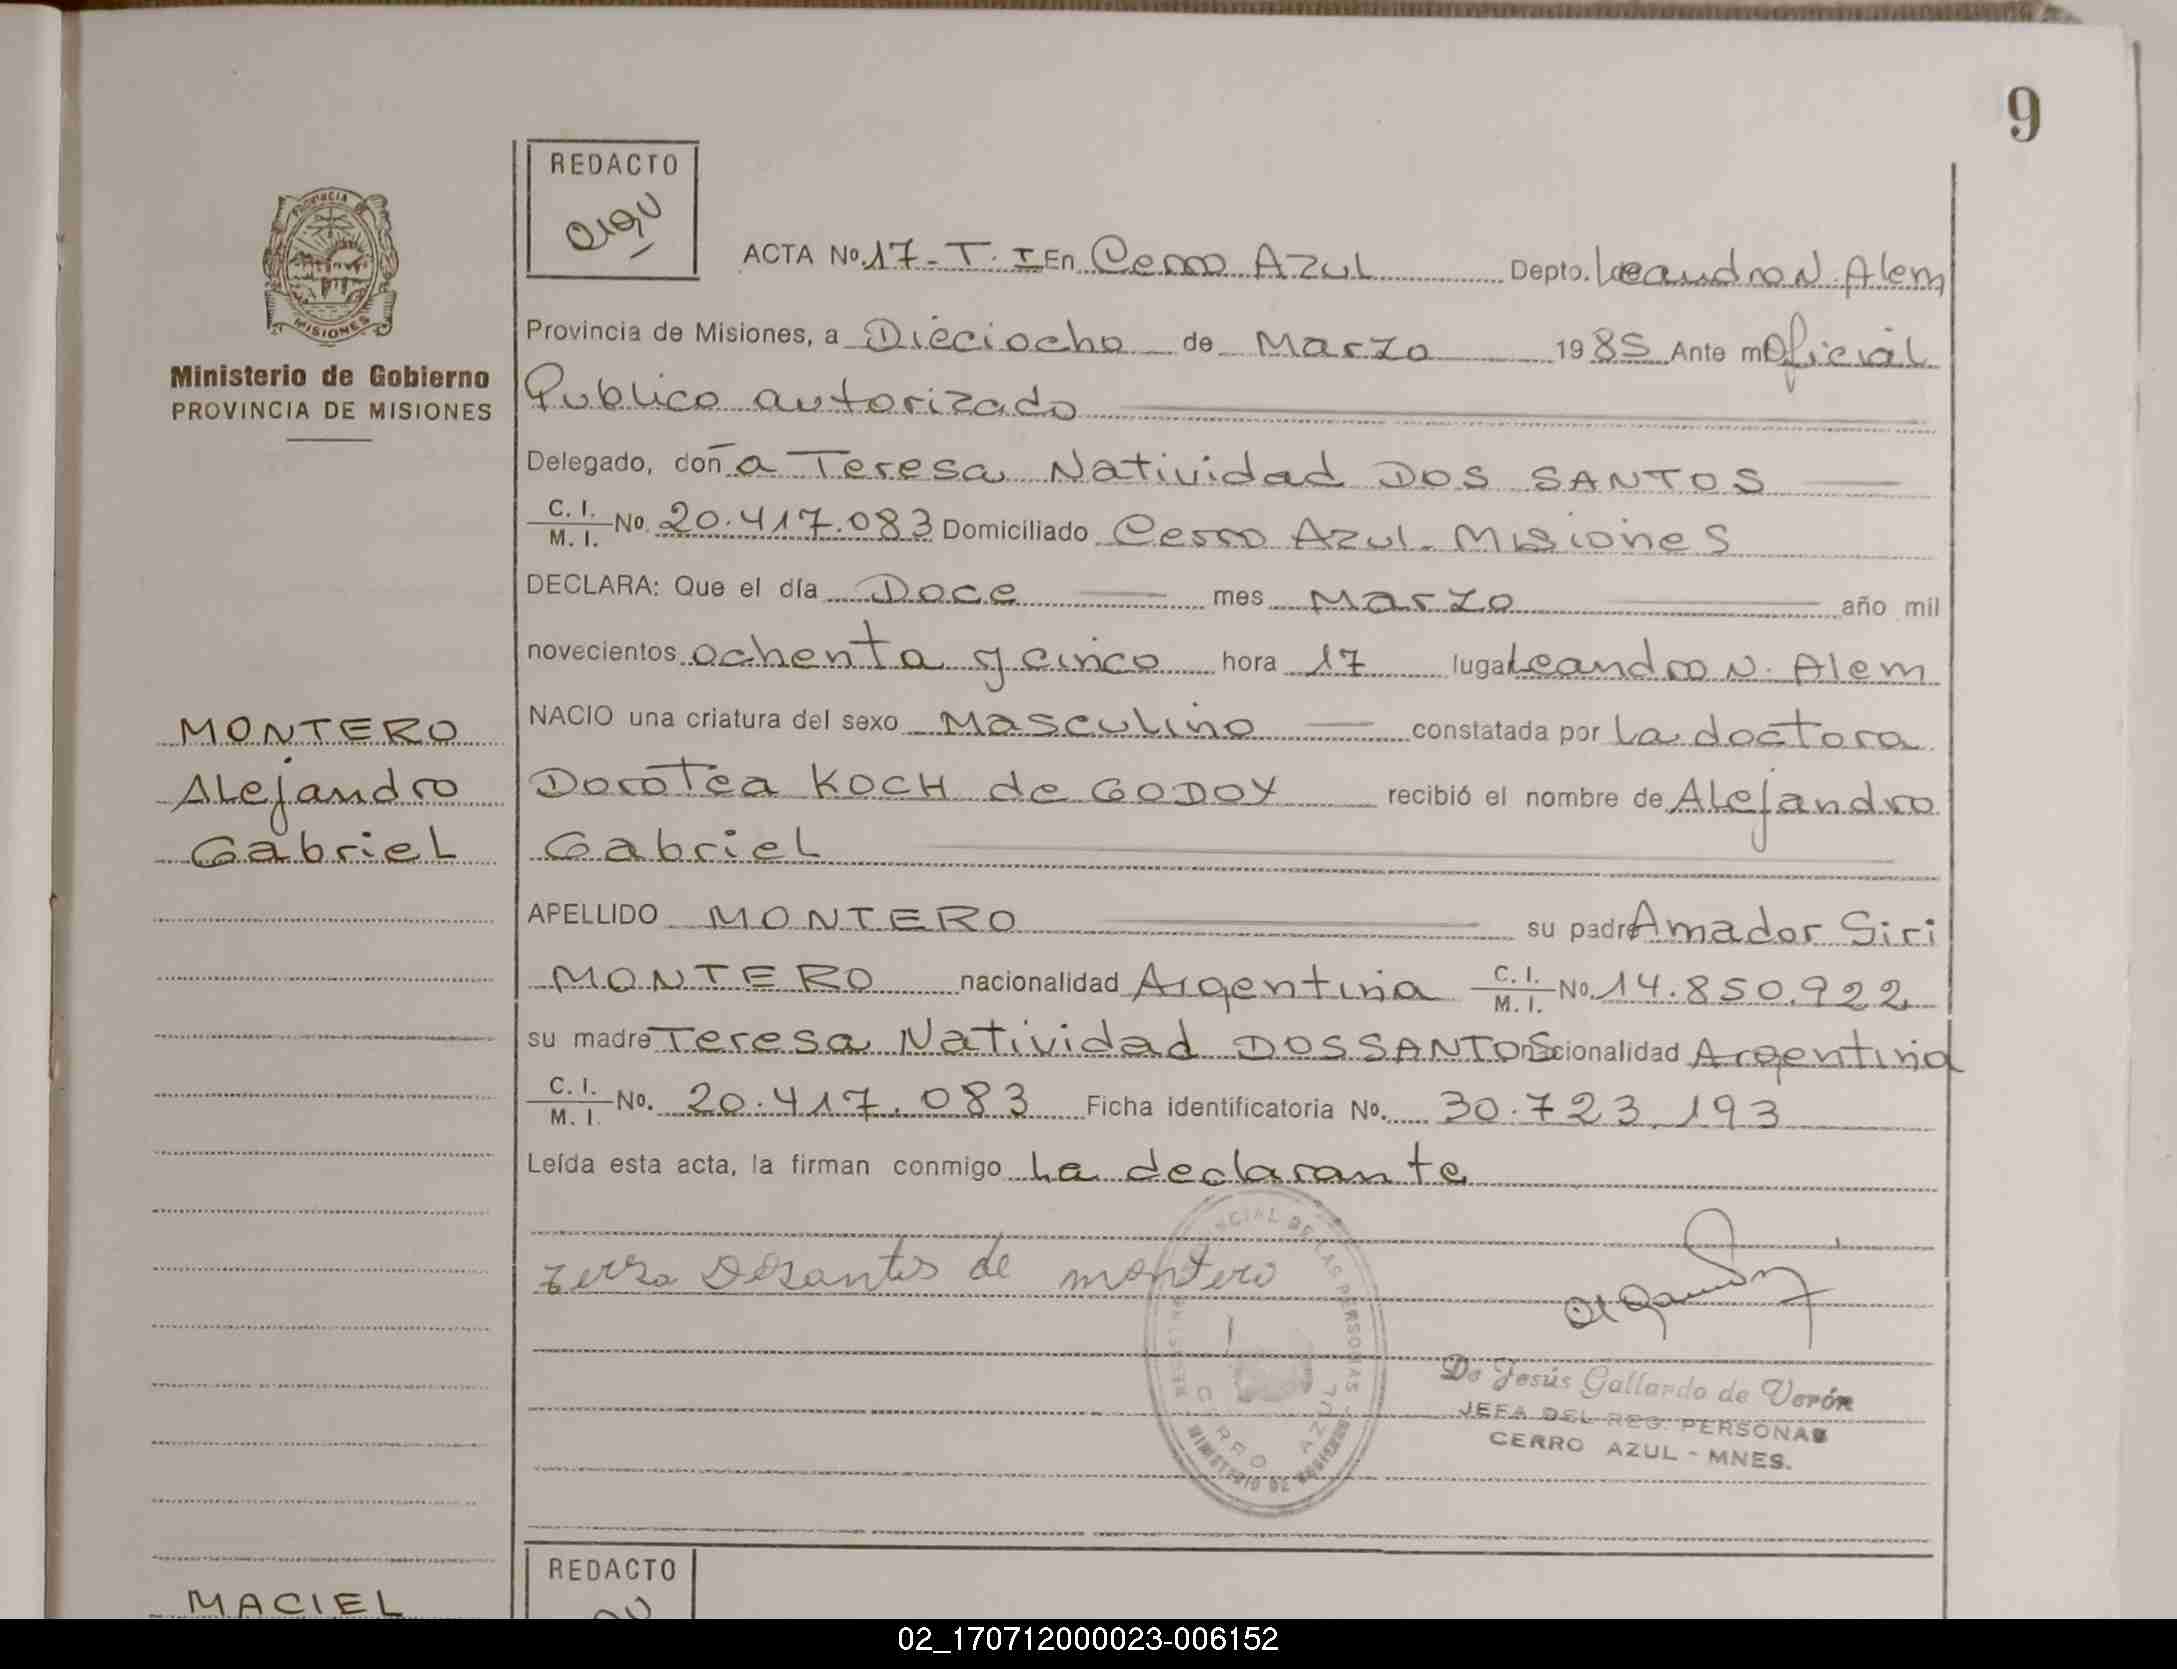 9
REDACTO
PROVINCIA DE
MISIONES
Ministerio de Gobierno
PROVINCIA DE MISIONES
ACTA No. 17 - T. I En Cerro Azul Depto. Leandro N. Alem
Provincia de Misiones, a Dieciocho de Marzo 1985 Ante mi Oficial
Publico autorizado
Delegado, doña Teresa Natividad DOS SANTOS
C. I.
M. I. No. 20.417.083 Domiciliado Cerro Azul - Misiones
DECLARA: Que el día Doce mes Marzo año mil
novecientos ochenta y cinco hora 17 lugar Leandro N. Alem
NACIO una criatura del sexo Masculino constatada por La doctora
Dorotea KOCH de GODOY recibió el nombre de Alejandro
Gabriel
MONTERO
Alejandro
Gabriel
APELLIDO MONTERO su padre Amador Siri
MONTERO nacionalidad Argentina C. I. M. I. No. 14.850.922
su madre Teresa Natividad DOS SANTOS nacionalidad Argentina
C. I.
M. I. No. 20.417.083 Ficha identificatoria No. 30.723.193
Leída esta acta, la firman conmigo La declarante
de montero
De Jesús Gallardo de Verón
JEFA DEL REG. PERSONAS
CERRO AZUL - MNES.
CERRO AZUL
REDACTO
MACIEL
02_170712000023-006152